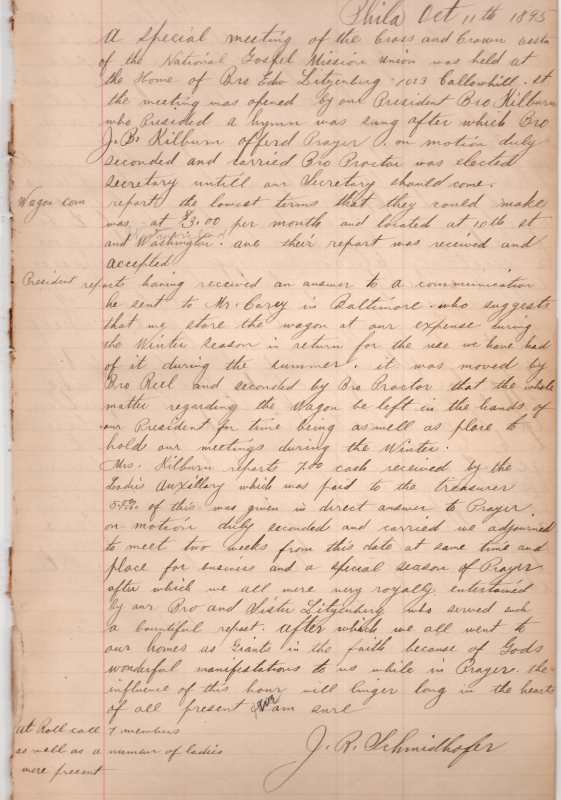 Phila Oct 11th 1895
A special meeting of the Cross and Crown assn
of the National Gospel Mission union was held at
the Home of Bro Edw Litzenberg 1023 Callowhill. st
the meeting was opened by our President Bro Kilburn
who Presided a hymn was sung after which Bro
J. B. Kilburn offerd Prayer. on motion duly
seconded and carried Bro Proctor was elected
secretary untill our Secretary should come.
Wagon com report the lowest terms that they could make
was at $3.00 per month and located at 10th st
and Washington. ave their report was received and
accepted
President reports having received an answer to a communication
he sent to Mr. Carey in Baltimore. who suggests
that we store the wagon at our expense during
the Winter season in return for the use we have had
of it during the summer. it was moved by
Bro Reel and seconded by Bro Proctor that the whole
matter regarding the Wagon be left in the hands of
our President for time being as well as place to
hold our meetings during the Winter.
Mrs. Kilburn reports 7.00 cash received by the
Ladies Auxillary which was paid to the treasurer
5.00 of this was given in direct answer to Prayer
on motion duly seconded and carried we adjourned
to meet two weeks from this date at same time and
place for business and a special season of Prayer
after which we all were very royally entertained
by our Bro and Sister Litzenberg who served such
a bountiful repast. after which we all went to
our homes as Giants in the faith because of Gods
wonderful manifestations to us while in Prayer. the
influence of this hour will linger long in the hearts
of all present we am sure
at Roll call 7 members
as well as a number of ladies
were present
J. R. Schmidhofer